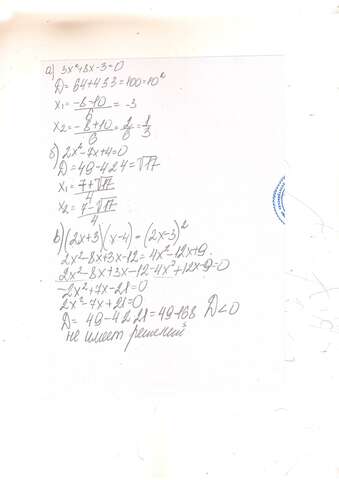 а) 3x²+8x-3=0
D= 64+4·3·3=100=10²
x₁= -8-10/6 = -3
x₂= -8+10/6 = 2/6 = 1/3
б) 2x²-7x+4=0
D=49-4·2·4=√17
x₁ = 7+√17/4
x₂ = 7-√17/4
в) (2x+3)(x-4)=(2x-3)²
2x²-8x+3x-12=4x²-12x+9
2x²-8x+3x-12-4x²+12x-9=0
-2x²+7x-21=0
2x²-7x+21=0
D= 49-4·2·21=49-168 D<0
не имеет решений